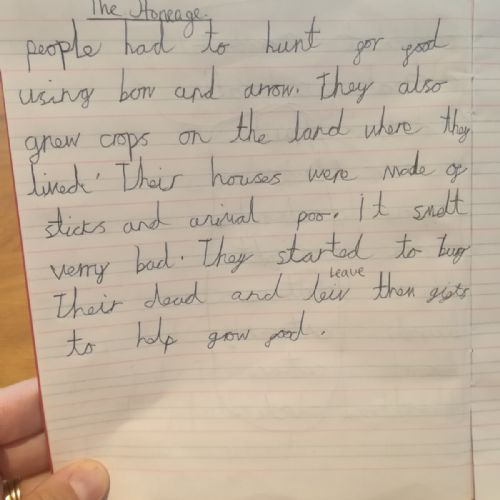 The Stoneage.
people had to hunt for food
using bow and arrow. They also
grew crops on the land where they
lived. Their houses were made of
sticks and animal poo. it smelt
verry bad. They started to bury
Their dead and leiv leave then gifts
to help grow food.